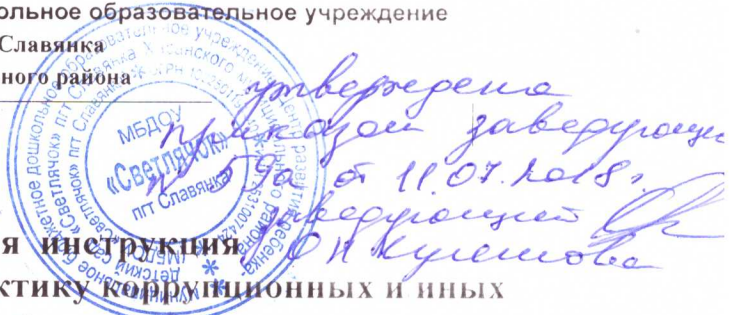 ольное образовательное учреждение
Славянка
ного района
утверждена
приказом заведующи
№ 59а от 11.07.2018г
заведующий
О Н Кулешова
МБДОУ
«Светлячок»
пгт Славянка
я инструкция
ктику коррупционных и иных